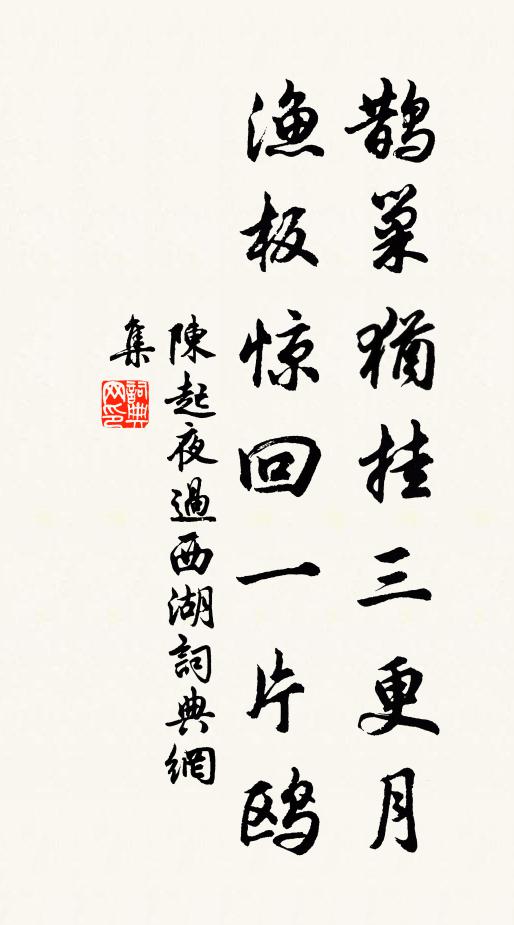 鹊巢猶挂三更月
渔板惊回一片鸥
陳起夜過西湖詞典網
集
詞典
网印